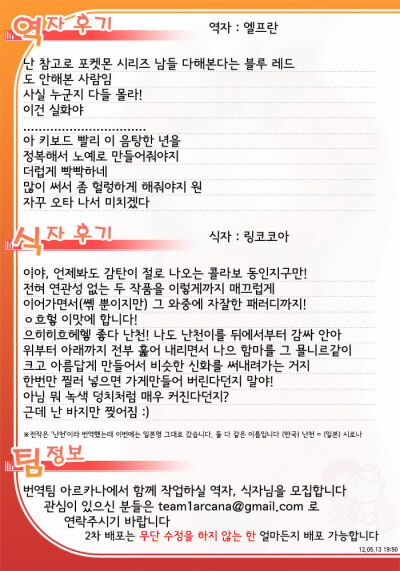 역자 후기
역자 : 엘프란
난 참고로 포켓몬 시리즈 남들 다해본다는 블루 레드
도 안해본 사람임
사실 누군지 다들 몰라!
이건 실화야
................................
아 키보드 빨리 이 음탕한 년을
정복해서 노예로 만들어줘야지
더럽게 빡빡하네
많이 써서 좀 헐렁하게 해줘야지 원
자꾸 오타 나서 미치겠다
식자 후기
식자 : 링코코아
이야, 언제봐도 감탄이 절로 나오는 콜라보 동인지구만!
전혀 연관성 없는 두 작품을 이렇게까지 매끄럽게
이어가면서(쎾 뿐이지만) 그 와중에 자잘한 패러디까지!
ㅇ흐헣 이맛에 합니다!
으히히흐헤헿 좋다 난천! 나도 난천이를 뒤에서부터 감싸 안아
위부터 아래까지 전부 훑어 내리면서 나으 함마를 그 묠니르같이
크고 아름답게 만들어서 비슷한 신화를 써내려가는 거지
한번만 찔러 넣으면 가게만들어 버린다던지 말야!
아님 뭐 녹색 덩치처럼 매우 커진다던지?
근데 난 바지만 찢어짐 :)
※전작은 '난천'이라 번역했는데 이번에는 일본명 그대로 갔습니다. 둘 다 같은 이름입니다 (한국) 난천 = (일본) 시로나
팀 정보
번역팀 아르카나에서 함께 작업하실 역자, 식자님을 모집합니다
관심이 있으신 분들은 team1arcana@gmail.com 로
연락주시기 바랍니다
2차 배포는 무단 수정을 하지 않는 한 얼마든지 배포 가능합니다
12,05,13 19:50